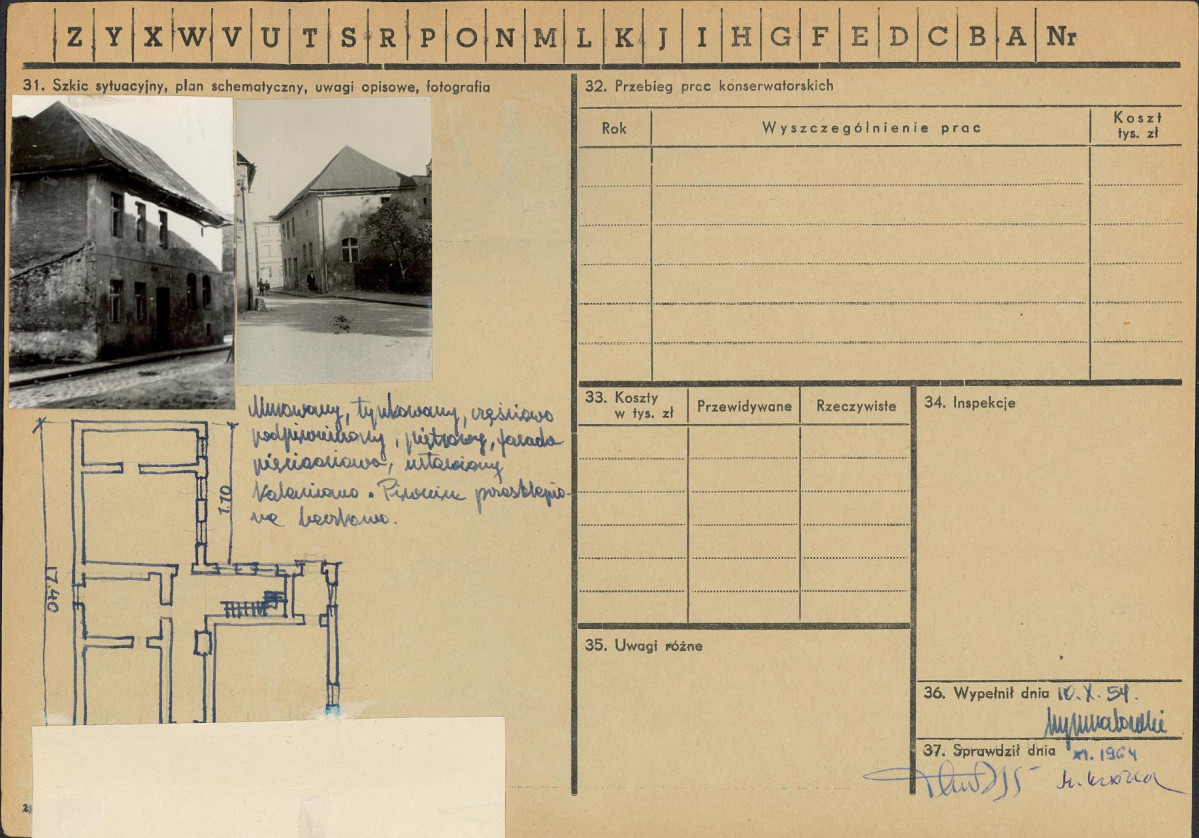 Z Y X W V U T S R P O N M L K J I H G F E D C B A Nr
31. Szkic sytuacyjny, plan schematyczny, uwagi opisowe, fotografia
Murowany, tynkowany, częściowo
podpiwniczony, piętrowy, fasada
pięcioosiowa, ustawiony
kalenicowo. Piwnice przesklepio-
ne beczkowo.
1.10
17.40
32. Przebieg prac konserwatorskich
Rok
Wyszczególnienie prac
Koszt
tys. zł
33. Koszty
w tys. zł
Przewidywane
Rzeczywiste
34. Inspekcje
35. Uwagi różne
36. Wypełnił dnia 10.X.59.
37. Sprawdził dnia XI.1964